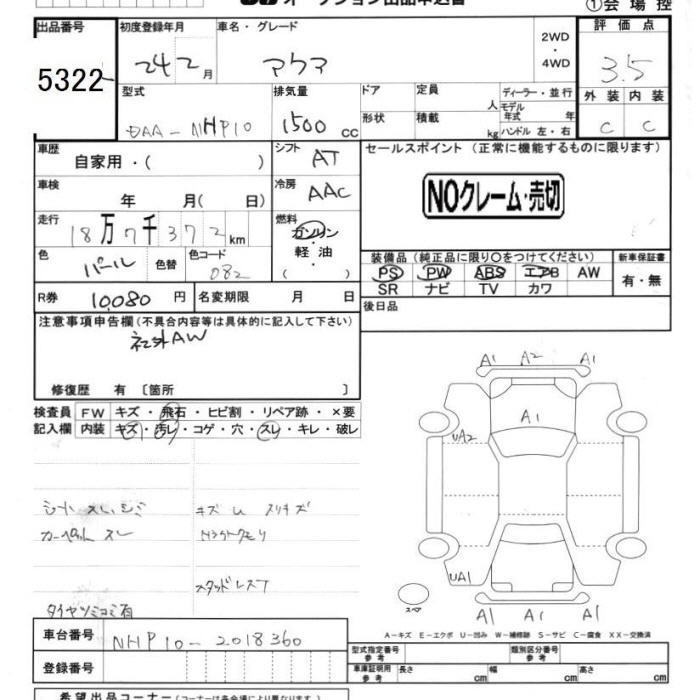 オークション出品申込書
①会場控
出品番号 初度登録年月 車名・グレード 2WD・4WD 評価点
5322 24 2月 アクア 3.5
型式 排気量 ドア 定員 人 ディーラー・並行 外装 内装
DAA-NHP10 1500cc 形状 積載 kg モデル年式 年 C C
ハンドル 左・右
車歴 自家用・( ) シフト AT セールスポイント (正常に機能するものに限ります)
車検 年 月( 日) 冷房 AAC NOクレーム・売切
走行 18万7千372km 燃料 ガソリン・軽油( )
色 パール 色替 色コード 082
装備品(純正品に限り〇をつけてください) 新車保証書
PS PW ABS エアB AW 有・無
SR ナビ TV カワ
R券 10,080円 名変期限 月 日 後日品
注意事項申告欄(不具合内容等は具体的に記入して下さい)
社外AW
修復歴 有 〔箇所 〕
検査員記入欄 FW キズ・飛石・ヒビ割・リペア跡・×要
内装 キズ・汚レ・コゲ・穴・スレ・キレ・破レ
シート スレ、シミ キズ ム スリキズ
カーペット スレ
スタッドレス
タイヤツミコミ有
A1 A2 A1
A1
UA2
UA1
スペア
A1 A1 A1
A-キズ E-エクボ U-凹み W-補修跡 S-サビ C-腐食 XX-交換済
車台番号 NHP10-2018360
型式指定番号 参考 類別区分番号 参考
登録番号
車庫証明用 参考 長さ cm 幅 cm 高さ cm
希望出品コーナー(コーナーは各会場により異なります)